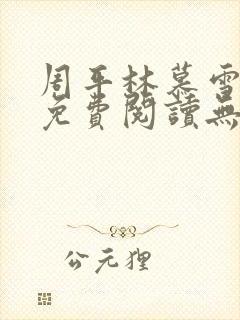 周平林慕雪
免費閱讀無
公元狸